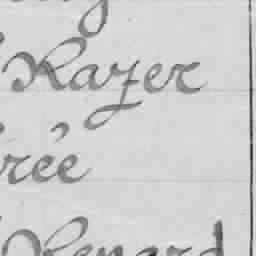 Razer
rée
Renard